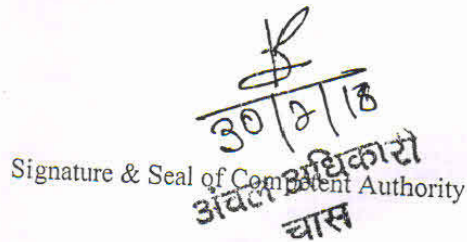 Signature & Seal of Competent Authority
अंचल अधिकारी
चास